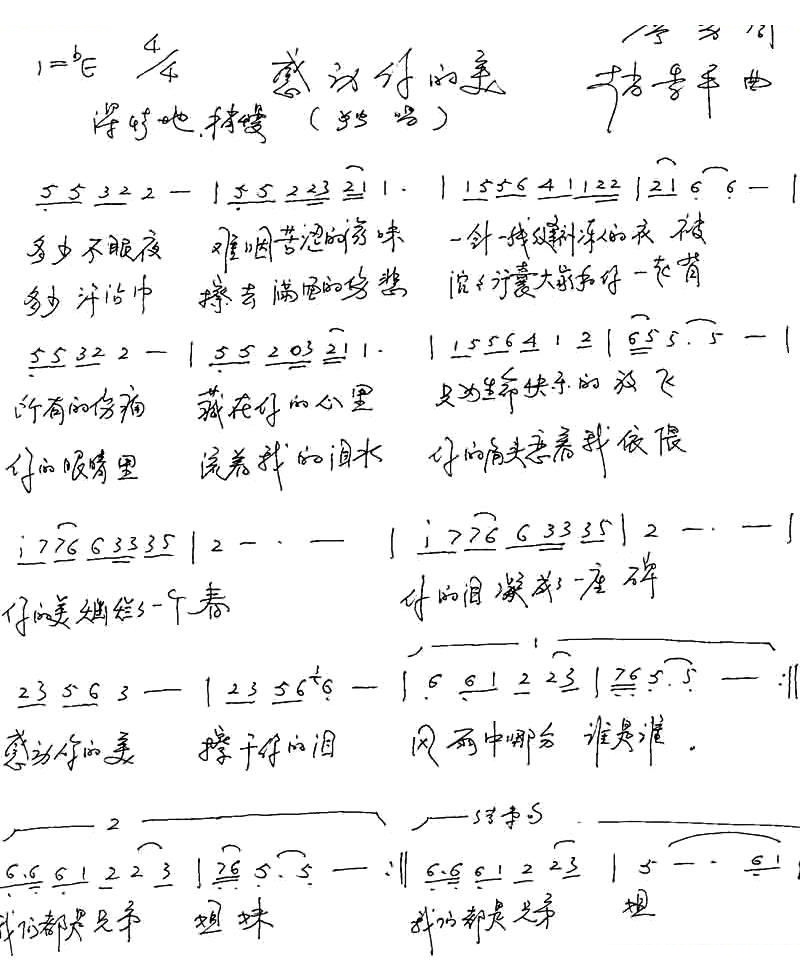 1=ᵇE 4/4 感动你的美 曲
深情地.稍慢 (独唱)
5 5 3 2 2 — | 5 5 2 2 3 2 1 1 · | 1 5 5 6 4 1 1 2 2 | 2 1 6 6 — |
多少不眠夜 难咽苦涩的滋味 一针一线缝制冻人的衣被
多少汗沾巾 擦去满面的伤悲 沉沉行囊大家和你一起背
5 5 3 2 2 — | 5 5 2 0 3 2 1 1 · | 1 5 5 6 4 1 2 | 6 5 5 · 5 — |
所有的伤痛 藏在你的心里 只为生命快乐的放飞
你的眼睛里 流着我的泪水 你的肩头恋着我依偎
i 7 7 6 6 3 3 3 5 | 2 — · — | i 7 7 6 6 3 3 3 5 | 2 — · — |
你的美灿烂了一个春 你的泪凝成了一座碑
1
2 3 5 6 3 — | 2 3 5 6 6 — | 6 6 1 2 2 3 | 7 6 5 · 5 — :||
感动你的美 擦干你的泪 风雨中哪分谁是谁.
2 结束句
6 · 6 6 1 2 2 3 | 7 6 5 · 5 — :|| 6 · 6 6 1 2 2 3 | 5 — · 6 1 |
我们都是兄弟 姐妹 我们都是兄弟 姐